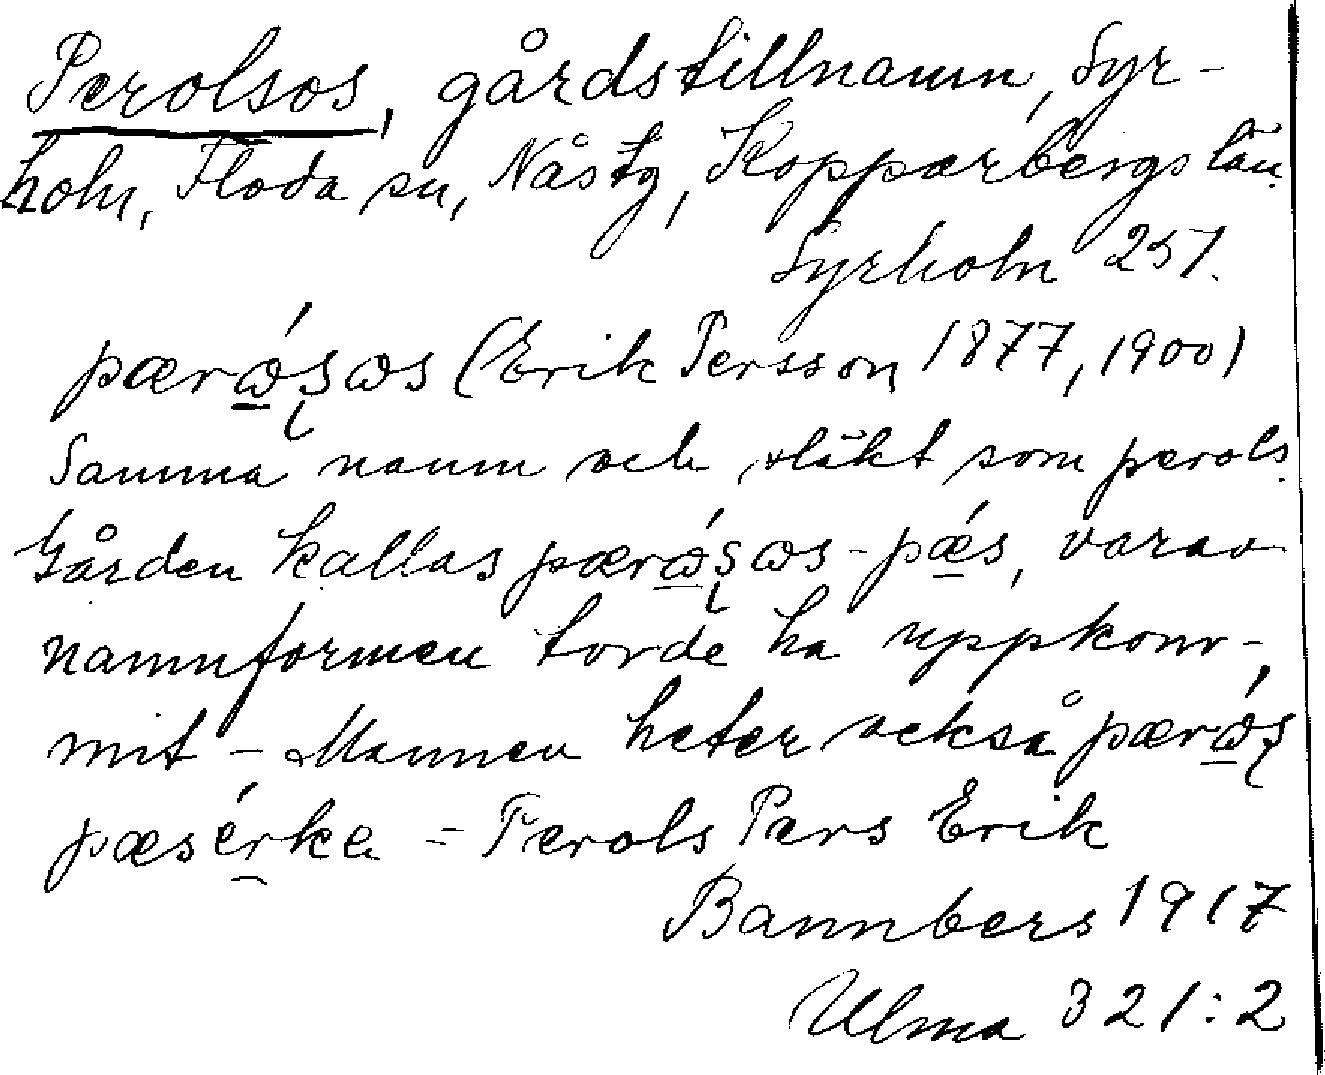 Perolsos, gårdstillnamn, Syr-
holn, Floda sn, Nås tg, Kopparbergs län.
Syrholn 251.
pærώ̲ʂωs (Erik Persson 1877, 1900)
Samma namn och släkt som perols.
Gården kallas pærώ̲ʂωs-pæ̲s, varav
namnformen torde ha uppkom-
mit – Mannen heter också pærώ̲ʂ
pæsé̲rke = Perols Pers Erik
Bannbers 1917
Ulma 321:2